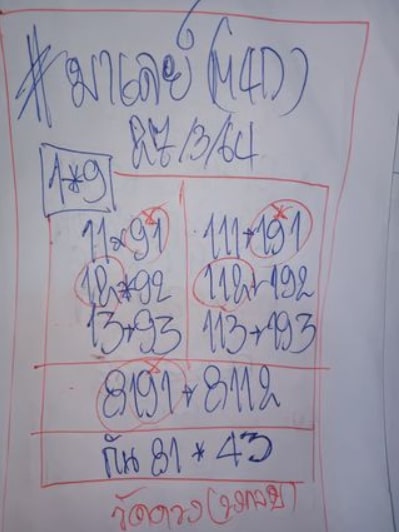 #มาเลย์ (M4D)
27/3/64
1*9
11*91 111*191
12*92 112*192
13*93 113*193
8191*8112
กัน 81*43
วัดดวง